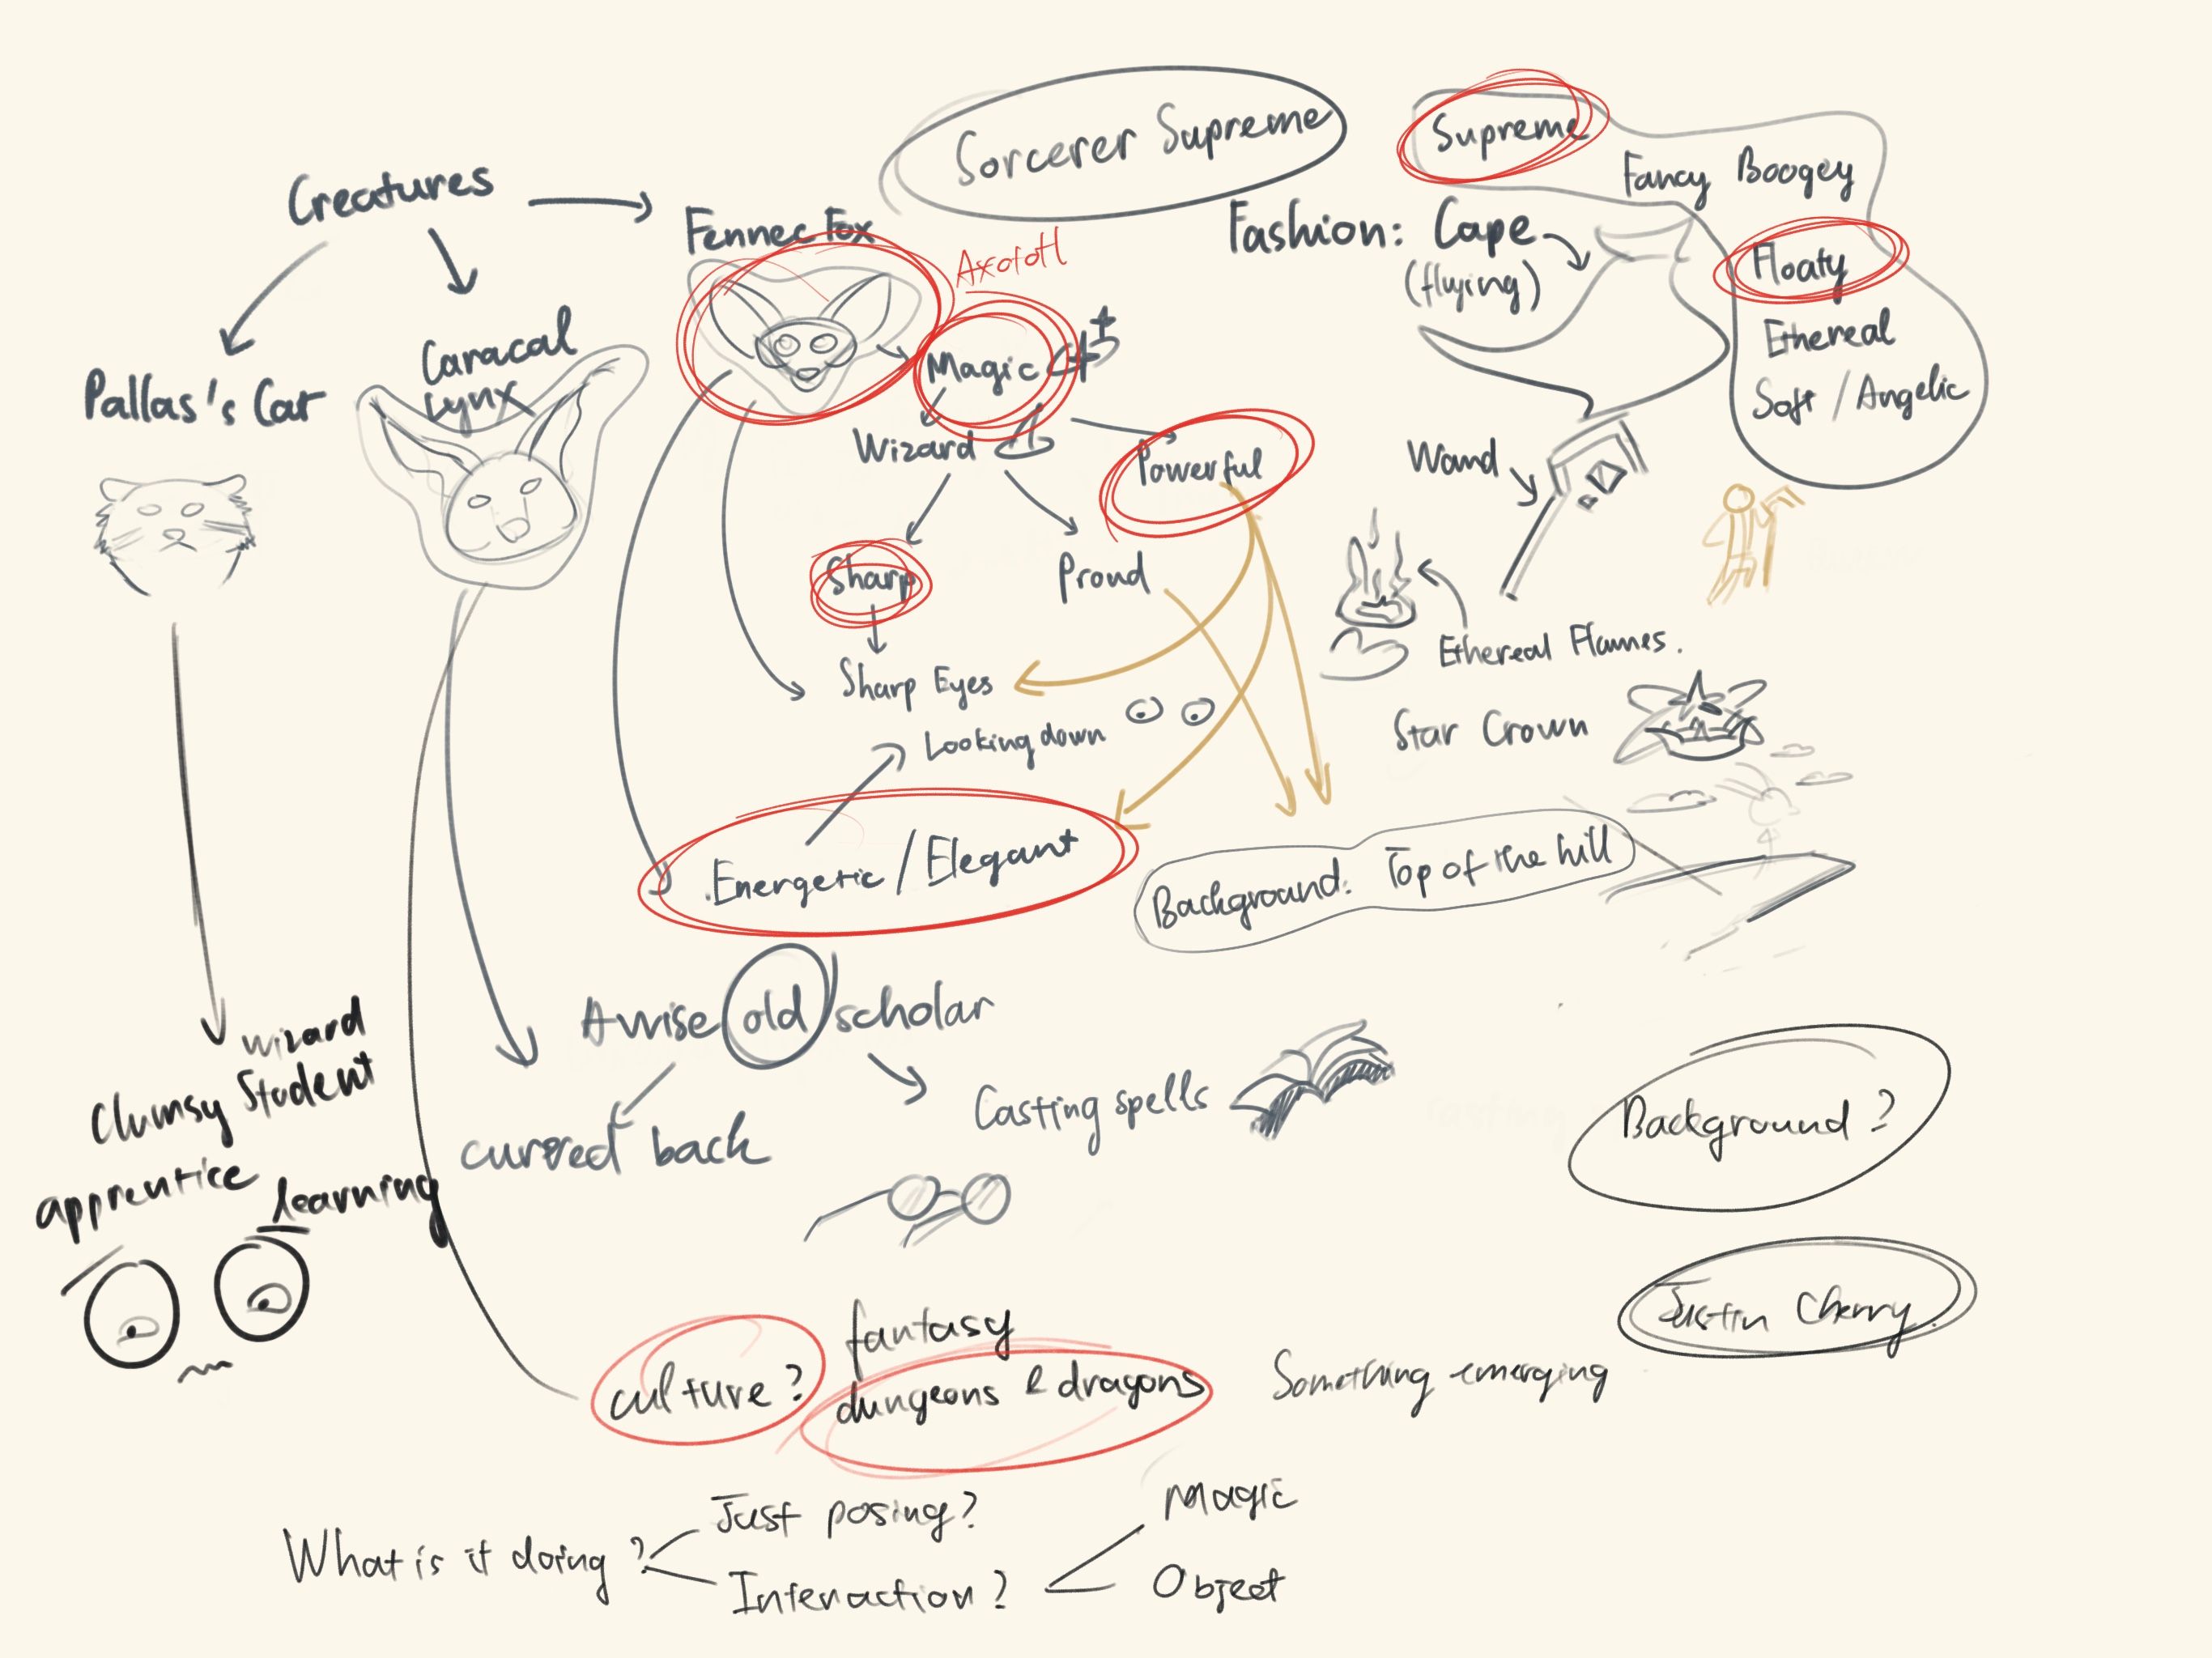 Sorcerer Supreme
Supreme
Fancy Boogey
Creatures
Fennec Fox
Axolotl
Fashion: Cape
(flying)
Floaty
Ethereal
Soft / Angelic
Pallas's Cat
Caracal
Lynx
Magic
Wizard
Powerful
Wand
Sharp
Proud
Ethereal Flames.
Sharp Eyes
Looking down
Star Crown
Energetic / Elegant
Background: Top of the hill
A wise old scholar
wizard
Clumsy Student
apprentice
learning
curved back
Casting spells
Background?
Justin Cherry.
culture?
fantasy
dungeons & dragons
Something emerging
What is it doing?
Just posing?
Interaction?
Magic
Object